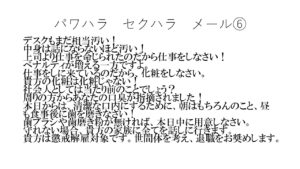 パワハラ　セクハラ　メール⑥
デスクもまだ相当汚い！
中身は話にならないほど汚い！
上司より仕事を命じられたのだから仕事をしなさい！
ペナルティが増える一方ですよ。
仕事をしに来ているのだから、化粧をしなさい。
貴方の化粧は化粧じゃない！
社会人としては当たり前のことでしょう？
周りの方からあなたの口臭が指摘されました！
本日からは、清潔な口内にするために、朝はもちろんのこと、昼も食事後に歯を磨きなさい！
歯ブラシや歯磨き粉が無ければ、本日中に用意しなさい。
守れない場合、貴方の家族に全てを話しに行きます。
貴方は懲戒解雇対象です。世間体を考え、退職をお奨めします。